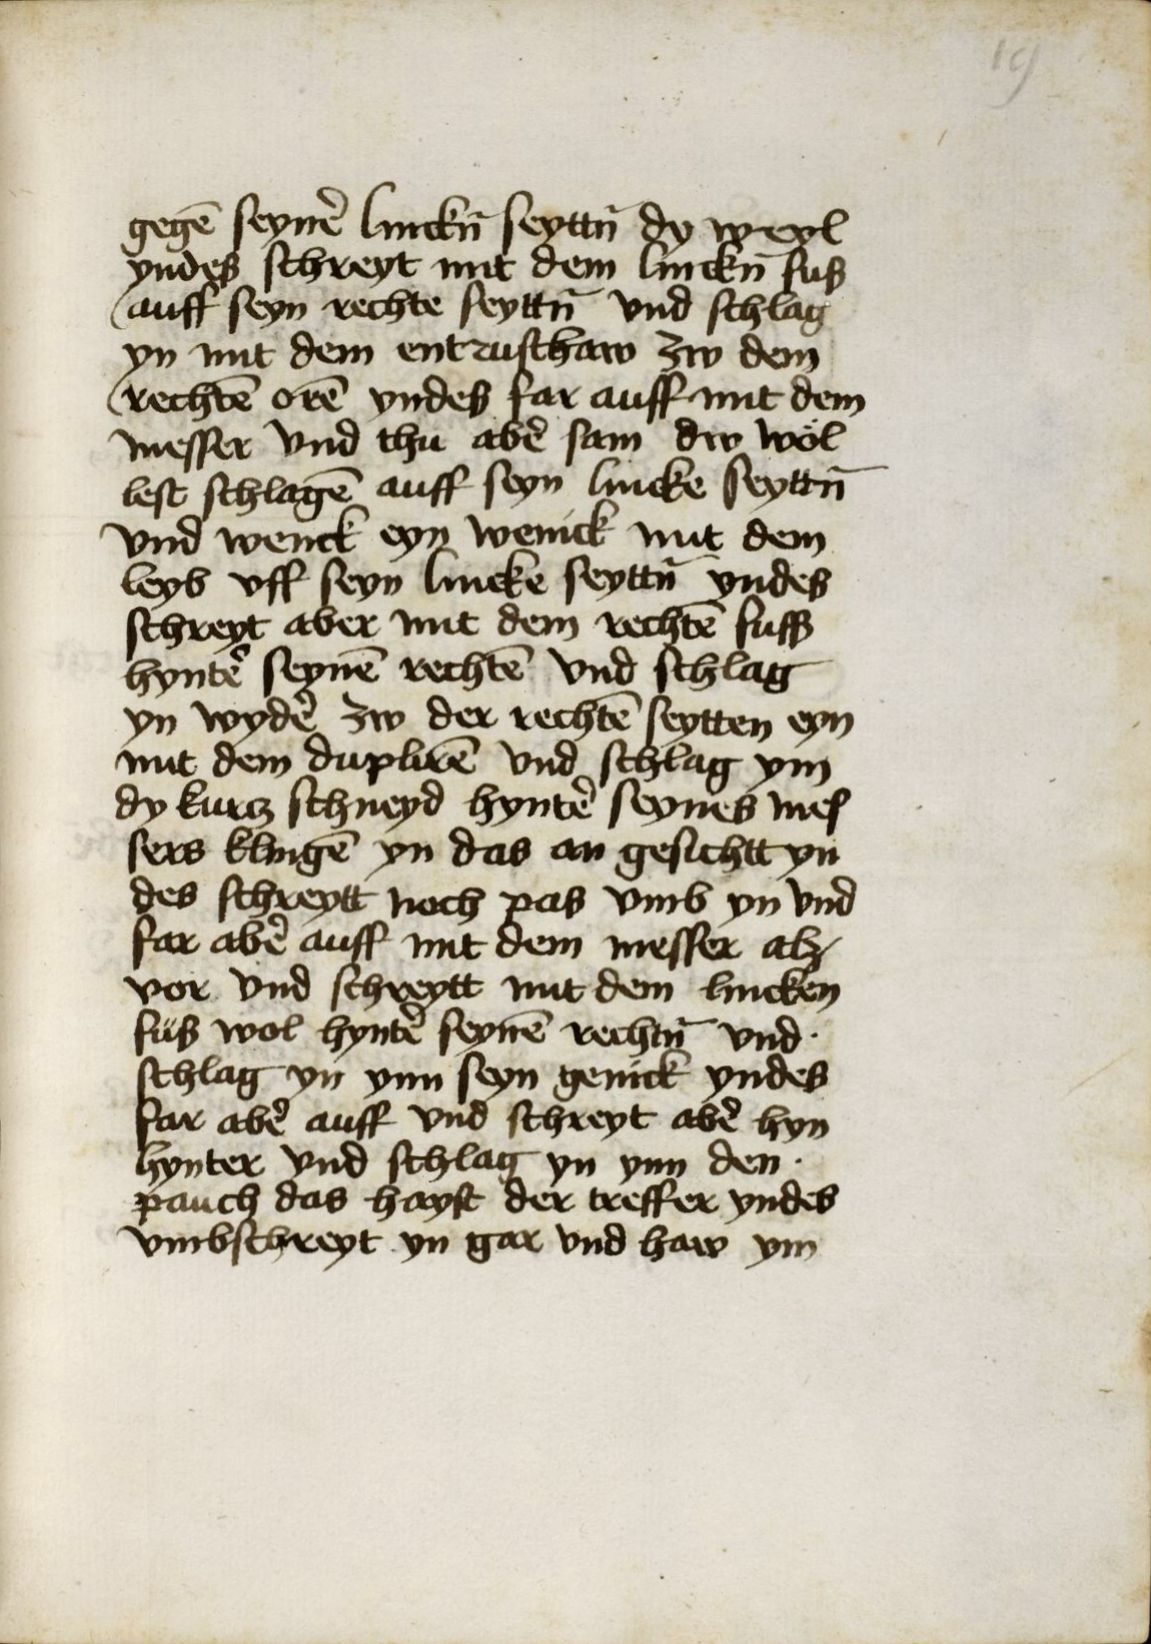 19
gegē seyne᷑ linckn̄ seyttn̄ dy weyl
yndes schreyt mit dem linckn̄ fus
auff seyn rechte seyttn̄ vnd schlag
yn mit dem entrusthaw zw dem
rechtē orē yndes far auff mit dem
messer vnd thu abe᷑ sam dw wöl
lest schlagē auff seyn lincke seyttn̄
vnd wenck eyn wenick mit dem
leyb vff seyn lincke seyttn̄ yndes
schreyt aber mit dem rechtē fuss
hynte᷑ seynē rechtē vnd schlag
yn wyde᷑ zw der rechtē seytten eyn
mit dem duplirē vnd schlag ym
dy kurcz schneyd hynte᷑ seynes mes
sers klingē yn das an gesichtt yn
des schreytt noch pas vmb yn vnd
far abe᷑ auff mit dem messer alz
vor vnd schreytt mit dem lincken
füs wol hynte᷑ seynē rechtn̄ vnd·
schlag yn ynn seyn genick yndes
far abe᷑ auff vnd schreyt abe᷑ hyn
hynter vnd schlag yn ynn den·
pauch das hayst der treffer yndes
vmbschreyt yn gar vnd haw ym